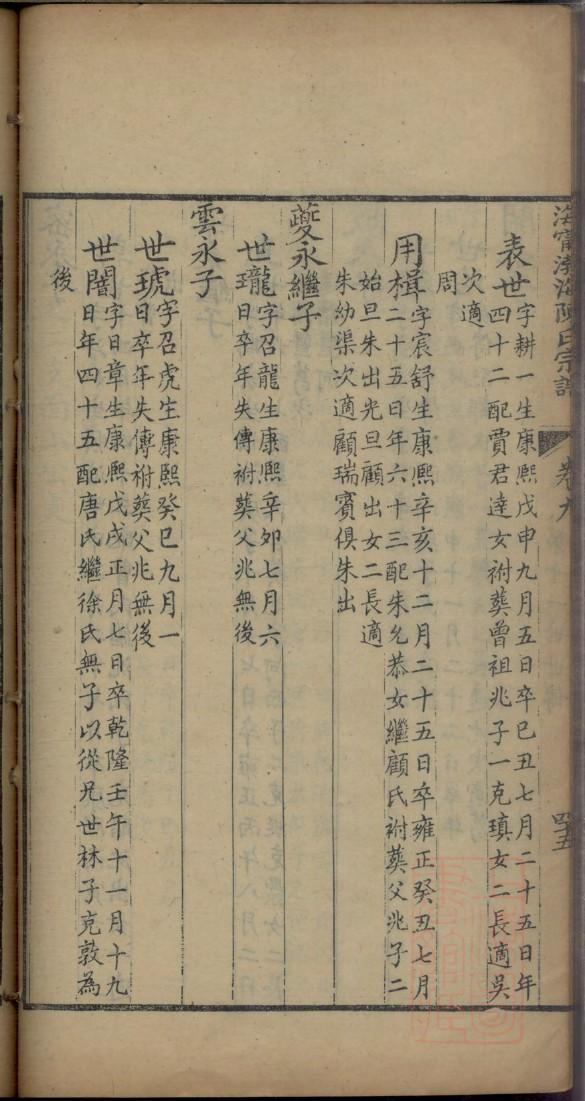 海寧渤海陳氏宗譜 卷九 四十五
表世 字耕一生康熙戊申九月五日卒己丑七月二十五日年
四十二配賈君達女祔葬曾祖兆子一克瑱女二長適吳
次適
周
用楫 字宸舒生康熙辛亥十二月二十五日卒雍正癸丑七月
二十五日年六十三配朱允恭女繼顧氏祔葬父兆子二
始旦朱出光旦顧出女二長適
朱幼渠次適顧瑞賓俱朱出
夔永繼子
世瓏 字召龍生康熙辛卯七月六
日卒年失傳祔葬父兆無後
雲永子
世琥 字召虎生康熙癸巳九月一
日卒年失傳祔葬父兆無後
世闇 字日章生康熙戊戌正月七日卒乾隆壬午十一月十九
日年四十五配唐氏繼徐氏無子以從兄世林子克敦為
後